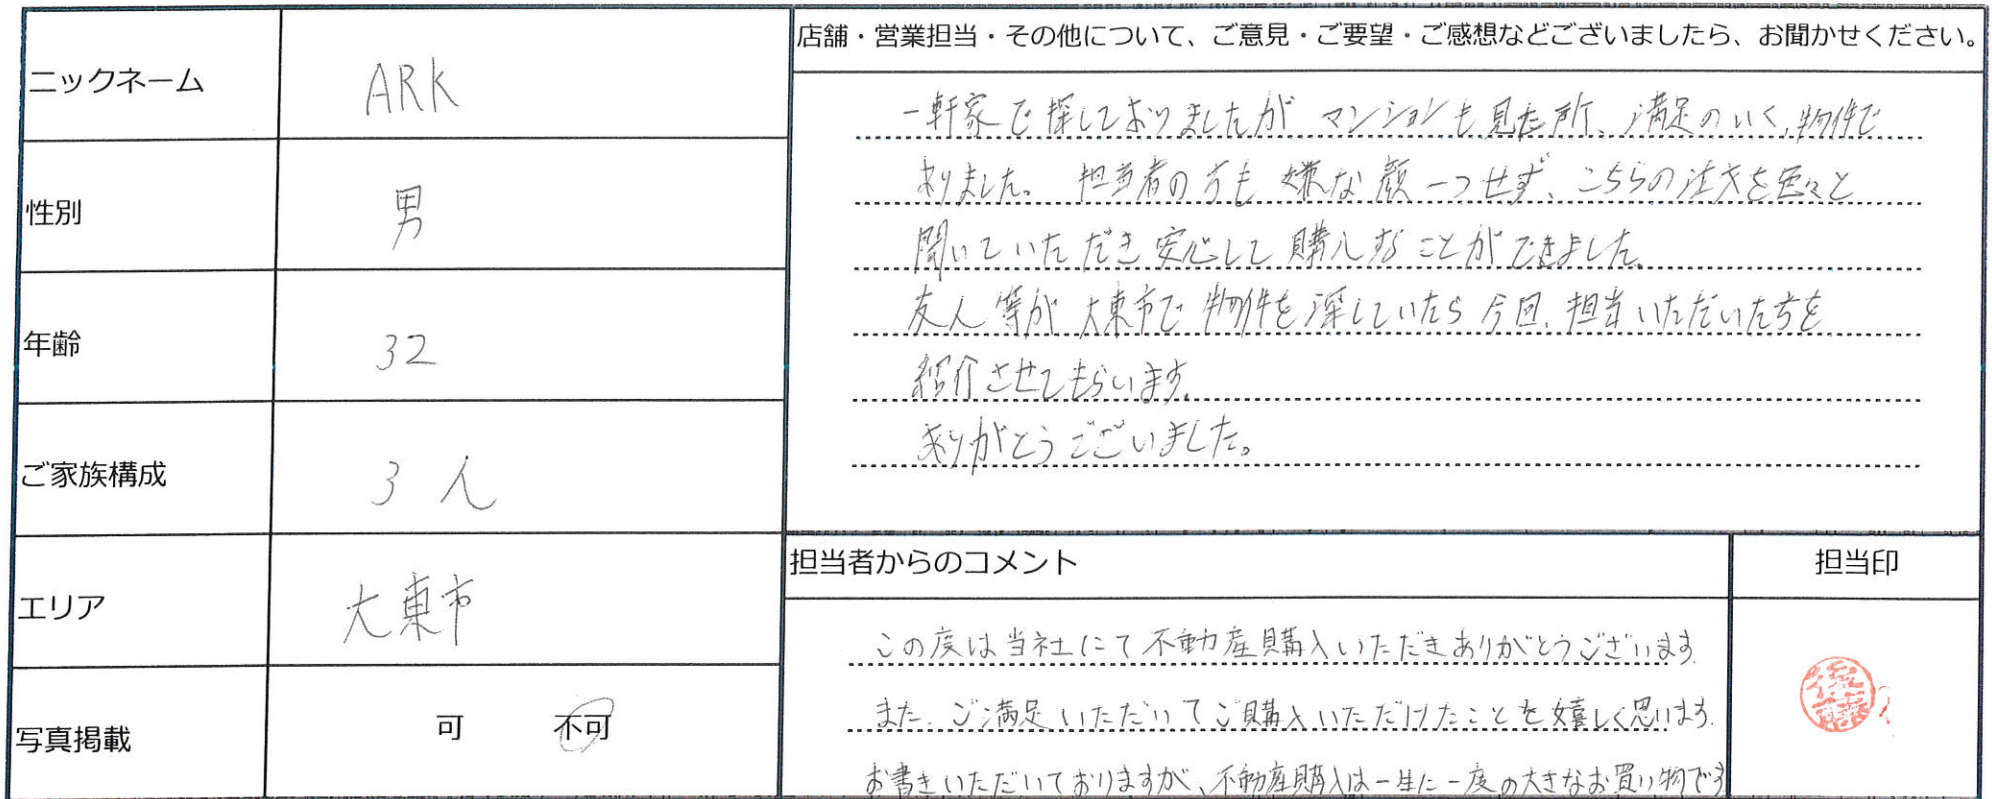 ニックネーム
ARK
性別
男
年齢
32
ご家族構成
3人
エリア
大東市
写真掲載
可 不可
店舗・営業担当・その他について、ご意見・ご要望・ご感想などございましたら、お聞かせください。
一軒家で探しておりましたが マンションも見た所、満足のいく、物件で
ありました。 担当者の方も 嫌な顔一つせず、こちらの注文を色々と
聞いていただき安心して購入することができました。
友人等が 大東市で 物件を探していたら 今回、担当いただいた方を
紹介させてもらいます。
ありがとうございました。
担当者からのコメント
この度は当社にて不動産購入いただきありがとうございます
また、ご満足いただいてご購入いただけたことを嬉しく思います。
お書きいただいておりますが、不動産購入は一生に一度の大きなお買い物です
担当印
後藤